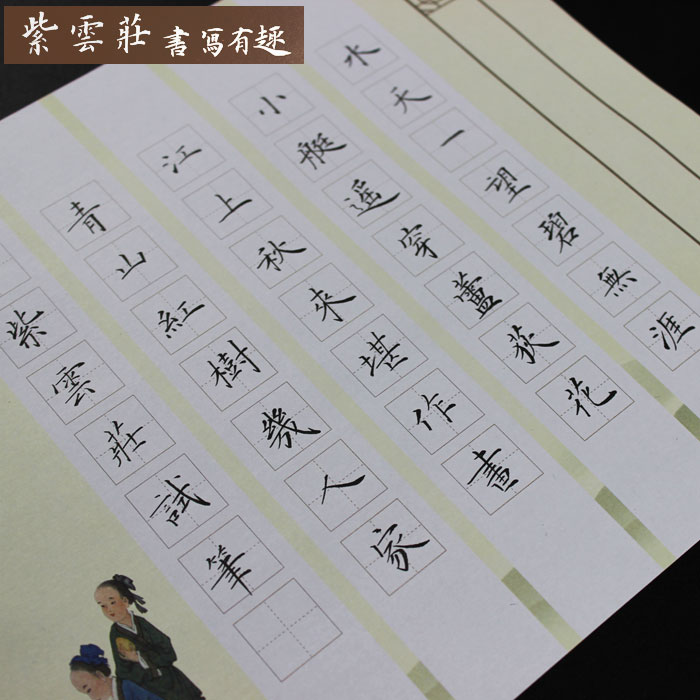 紫雲莊書寫有趣
水天一望碧無涯
小艇遥穿蘆荻花
江上秋來堪作畫
青山紅樹幾人家
紫雲莊試筆